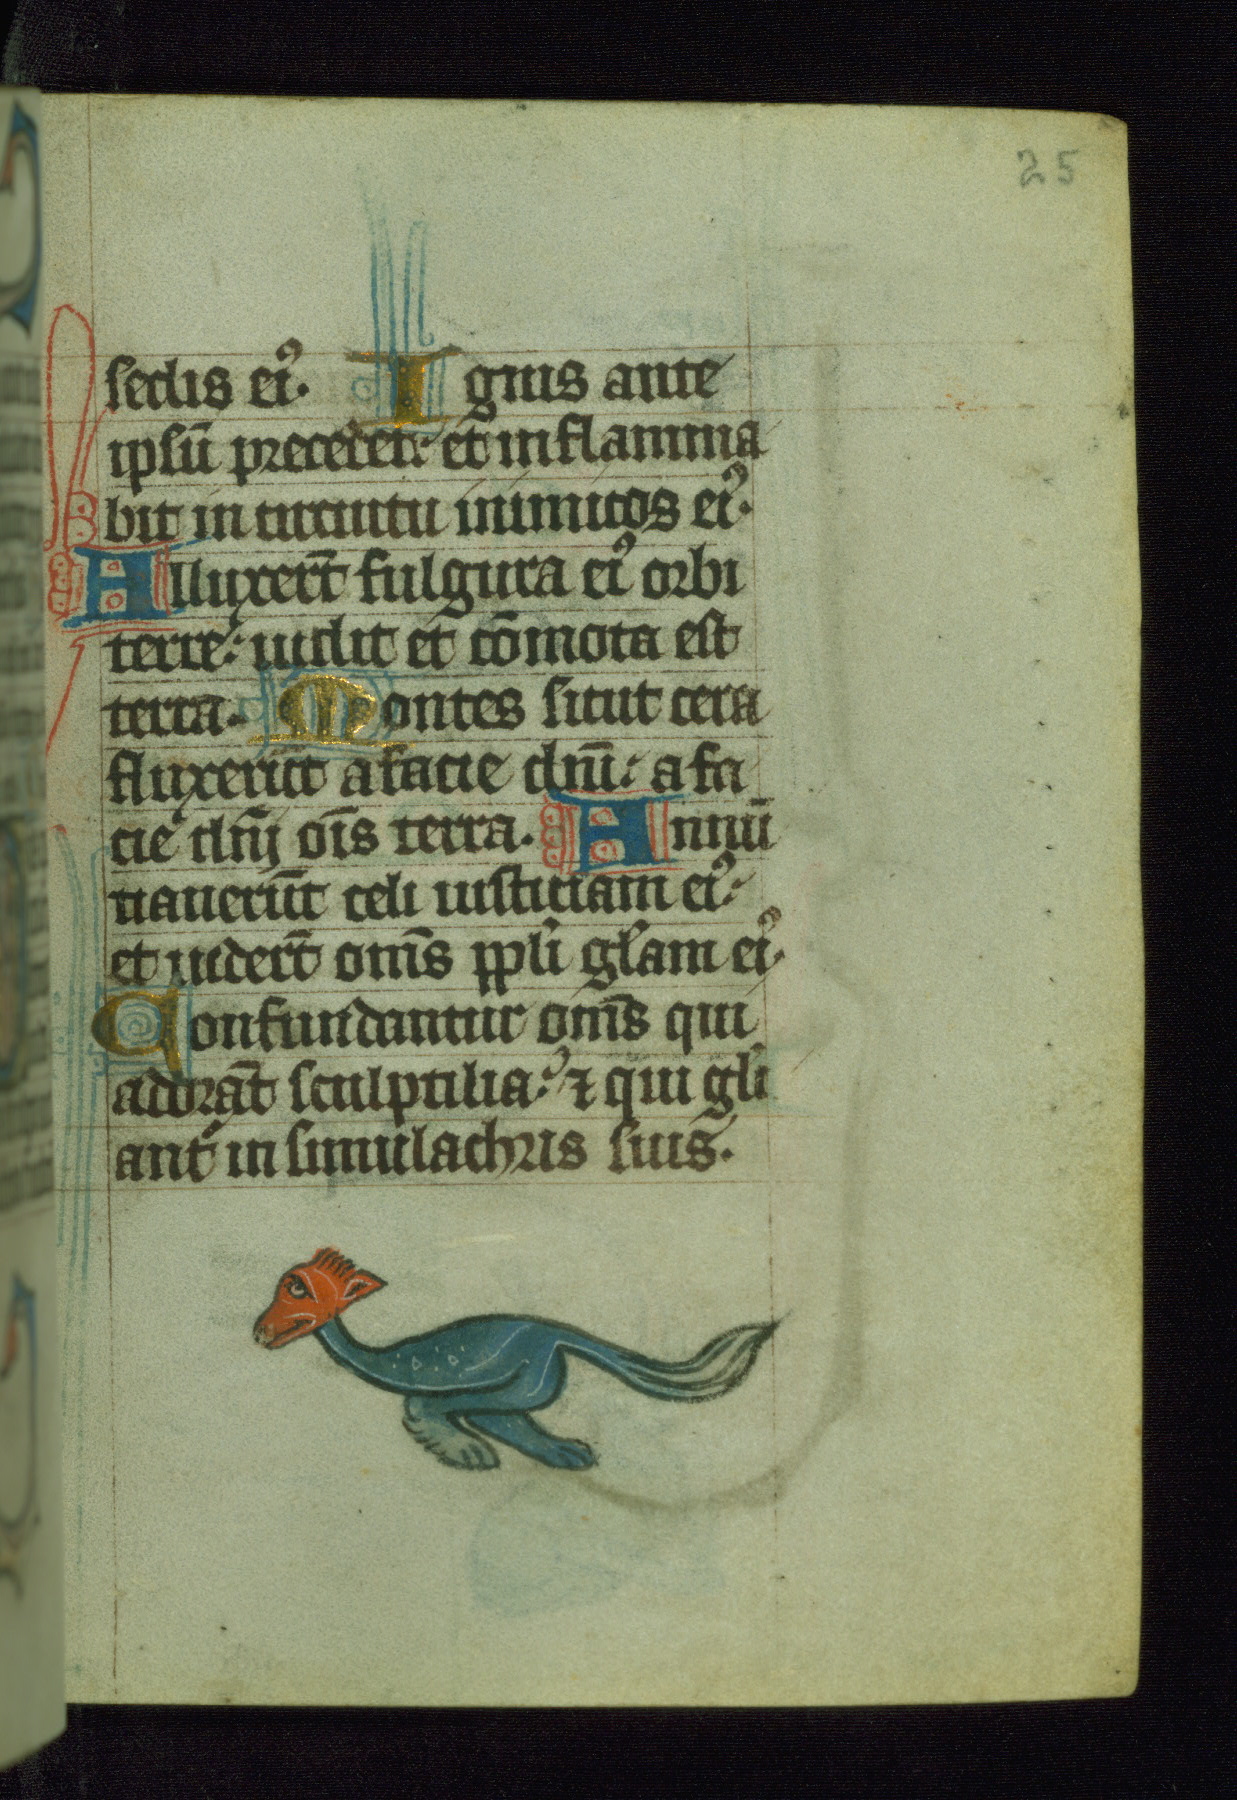 25
sedis ei⁹. Ignis ante
ipsū precedet: et inflamma
bit in circuitu inimicos ei⁹.
Alluxerūt fulgura ei⁹ orbi
terre: uidit et cōmota est
terra. Montes sicut cera
fluxerūt a facie dn̄i: a fa
cie dn̄i oīs terra. Annū
tiauerūt celi iusticiam ei⁹:
et uiderūt om̄s ppli glam ei⁹.
Confundantur om̄s qui
adorāt sculptilia: ⁊ qui gli
ant in simulachris suis.